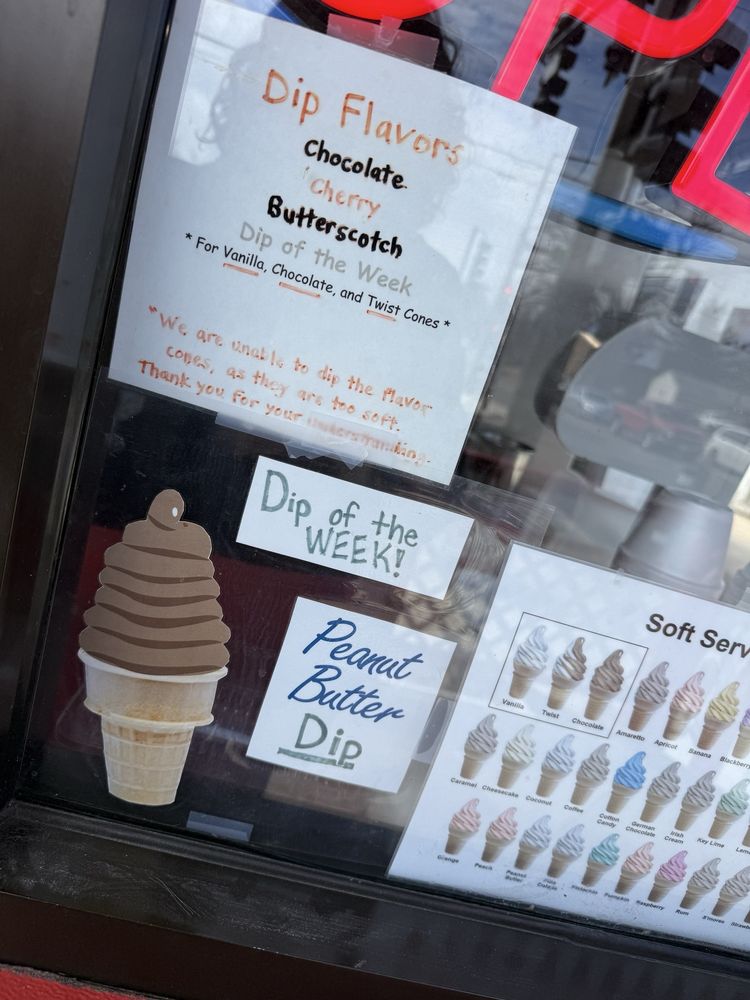 Dip Flavors
Chocolate
Cherry
Butterscotch
Dip of the Week
* For Vanilla, Chocolate, and Twist Cones *
"We are unable to dip the flavor
cones, as they are too soft.
Thank you for your understanding.
Dip of the
WEEK!
Peanut
Butter
Dip
Soft Serv
Vanilla Twist Chocolate Amaretto Apricot Banana Blackberry
Caramel Cheesecake Coconut Coffee Cotton Candy German Chocolate Irish Cream Key Lime Lemo
Orange Peach Peanut Butter Piña Colada Pistachio Pumpkin Raspberry Rum S'mores Strawb